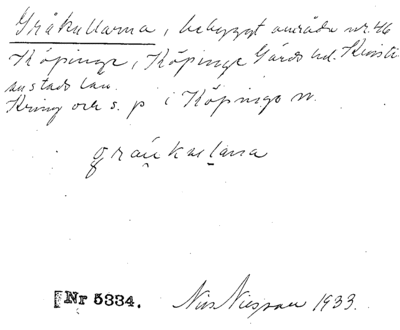 Gråkullarna, bebyggt område nr. 46
Köpinge, Köpinge Gärds hd. Kristi
anstads län.
Kring och s. p i Köpinge n.
gråu̯kulana
Nr 5334. Nils 1933.